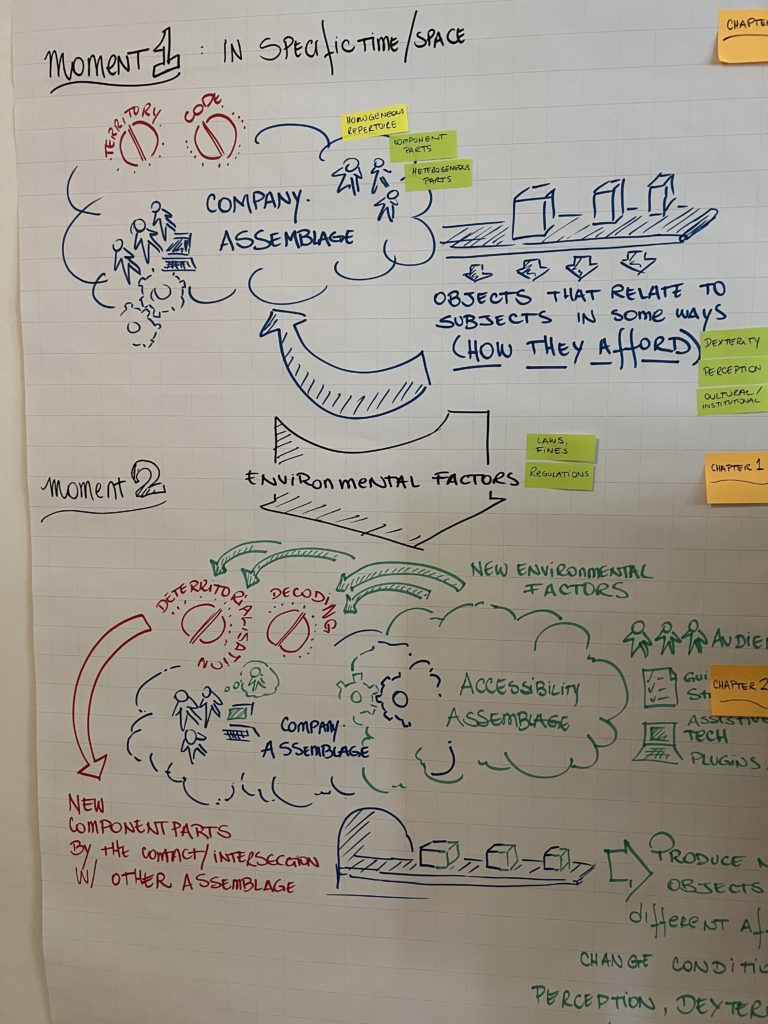 MOMENT 1 : IN SPECIFIC TIME/SPACE
CHAPTER
TERRITORY
CODE
HOMOGENEOUS
REPERTOIRE
COMPONENT
PARTS
HETEROGENEOUS
PARTS
COMPANY.
ASSEMBLAGE
OBJECTS THAT RELATE TO
SUBJECTS IN SOME WAYS
(HOW THEY AFFORD)
DEXTERITY
PERCEPTION
CULTURAL/
INSTITUTIONAL
LAWS,
FINES
REGULATIONS
ENVIRONMENTAL FACTORS
CHAPTER 1
MOMENT 2
NEW ENVIRONMENTAL
FACTORS
DETERRITORIALISATION
DECODING
AUDIE
ACCESSIBILITY
ASSEMBLAGE
GUI
ST
CHAPTER 2
ASSISTIVE
TECH
PLUGINS.
COMPANY.
ASSEMBLAGE
NEW
COMPONENT PARTS
BY THE CONTACT/INTERSECTION
W/ OTHER ASSEMBLAGE
PRODUCE N
OBJECTS
DIFFERENT AF
CHANGE CONDITIO
PERCEPTION, DEXTER